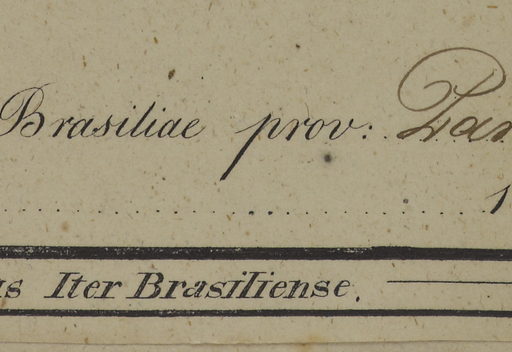 Brasiliae prov: Par
Iter Brasiliense.